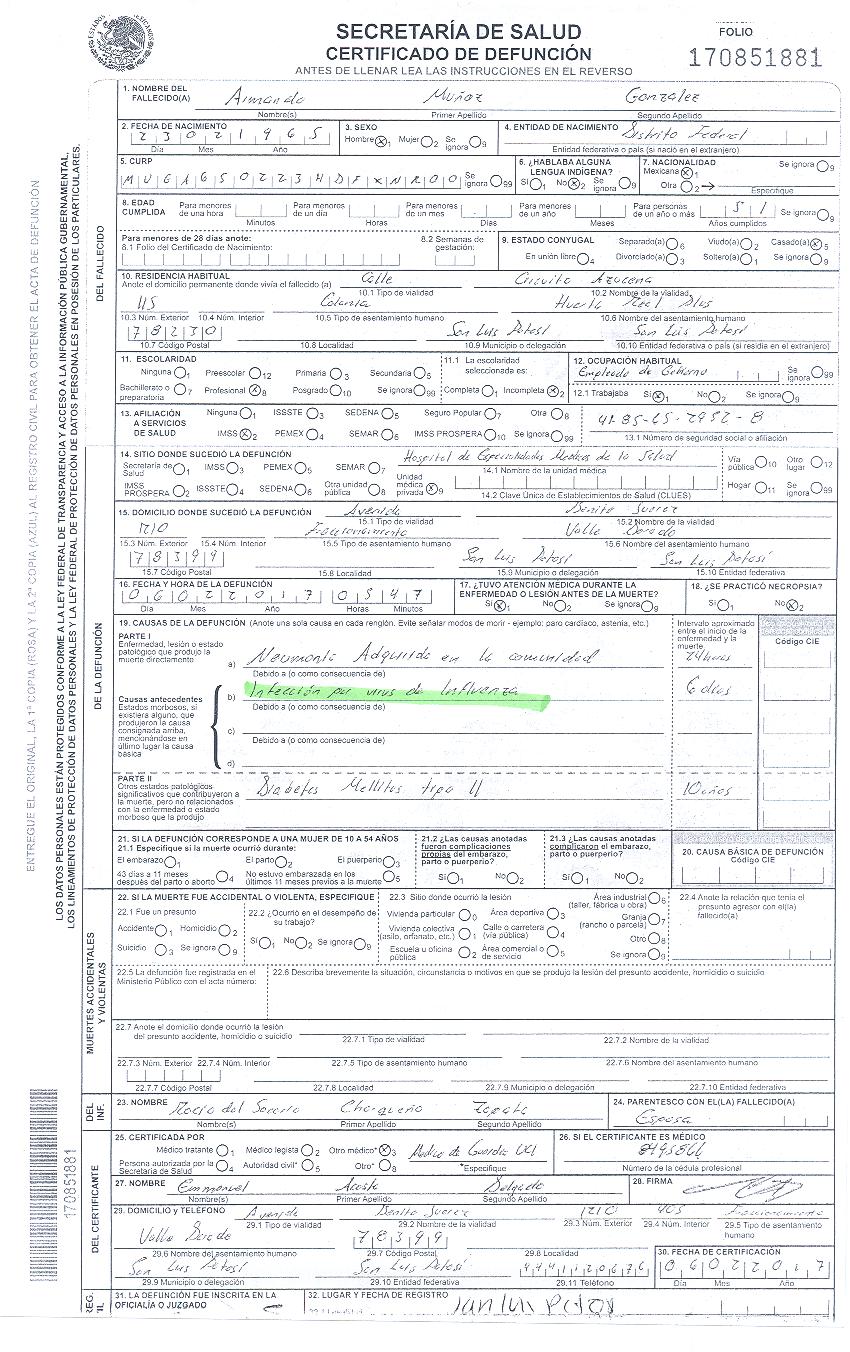 SECRETARÍA DE SALUD
CERTIFICADO DE DEFUNCIÓN
ANTES DE LLENAR LEA LAS INSTRUCCIONES EN EL REVERSO
FOLIO
170851881
ENTREGUE EL ORIGINAL, LA 1ª COPIA (ROSA) Y LA 2ª COPIA (AZUL) AL REGISTRO CIVIL PARA OBTENER EL ACTA DE DEFUNCIÓN
LOS DATOS PERSONALES ESTÁN PROTEGIDOS CONFORME A LA LEY FEDERAL DE TRANSPARENCIA Y ACCESO A LA INFORMACIÓN PÚBLICA GUBERNAMENTAL,
LOS LINEAMIENTOS DE PROTECCIÓN DE DATOS PERSONALES Y LA LEY FEDERAL DE PROTECCIÓN DE DATOS PERSONALES EN POSESIÓN DE LOS PARTICULARES.
170851881
DEL FALLECIDO
1. NOMBRE DEL FALLECIDO(A) Armando Muñoz González
Nombre(s) Primer Apellido Segundo Apellido
2. FECHA DE NACIMIENTO 23021965
Día Mes Año
3. SEXO Hombre 1 Mujer 2 Se ignora 9
4. ENTIDAD DE NACIMIENTO Distrito Federal
Entidad federativa o país (si nació en el extranjero)
5. CURP MUGA650223HDFXNR00 Se ignora 99
6. ¿HABLABA ALGUNA LENGUA INDÍGENA? Sí 1 No 2 Se ignora 9
7. NACIONALIDAD Mexicana 1 Otra 2 Especifique Se ignora 9
8. EDAD CUMPLIDA Para menores de una hora Minutos Para menores de un día Horas Para menores de un mes Días Para menores de un año Meses Para personas de un año o más 51 Años cumplidos Se ignora 9
Para menores de 28 días anote:
8.1 Folio del Certificado de Nacimiento: 8.2 Semanas de gestación:
9. ESTADO CONYUGAL Separado(a) 6 Viudo(a) 2 Casado(a) 5
En unión libre 4 Divorciado(a) 3 Soltero(a) 1 Se ignora 9
10. RESIDENCIA HABITUAL Calle Circuito Azucena
Anote el domicilio permanente donde vivía el fallecido (a) 10.1 Tipo de vialidad 10.2 Nombre de la vialidad
115 Colonia Huerta Real Plus
10.3 Núm. Exterior 10.4 Núm. Interior 10.5 Tipo de asentamiento humano 10.6 Nombre del asentamiento humano
78230 San Luis Potosí San Luis Potosí
10.7 Código Postal 10.8 Localidad 10.9 Municipio o delegación 10.10 Entidad federativa o país (si residía en el extranjero)
11. ESCOLARIDAD
Ninguna 1 Preescolar 12 Primaria 3 Secundaria 5
Bachillerato o preparatoria 7 Profesional 8 Posgrado 10 Se ignora 99
11.1 La escolaridad seleccionada es: Completa 1 Incompleta 2
12. OCUPACIÓN HABITUAL Empleado de Gobierno Se ignora 99
12.1 Trabajaba Sí 1 No 2 Se ignora 9
13. AFILIACIÓN A SERVICIOS DE SALUD
Ninguna 1 ISSSTE 3 SEDENA 5 Seguro Popular 7 Otra 8
IMSS 2 PEMEX 4 SEMAR 6 IMSS PROSPERA 10 Se ignora 99
41-85-65-2952-8
13.1 Número de seguridad social o afiliación
DE LA DEFUNCIÓN
14. SITIO DONDE SUCEDIÓ LA DEFUNCIÓN Hospital de Especialidades Médicas de la Salud
Secretaría de Salud 1 IMSS 3 PEMEX 5 SEMAR 7 Unidad médica privada 9
IMSS PROSPERA 2 ISSSTE 4 SEDENA 6 Otra unidad pública 8
14.1 Nombre de la unidad médica
14.2 Clave Única de Establecimientos de Salud (CLUES)
Vía pública 10 Otro lugar 12
Hogar 11 Se ignora 99
15. DOMICILIO DONDE SUCEDIÓ LA DEFUNCIÓN Avenida Benito Suarez
15.1 Tipo de vialidad 15.2 Nombre de la vialidad
1210 Fraccionamiento Valle Dorado
15.3 Núm. Exterior 15.4 Núm. Interior 15.5 Tipo de asentamiento humano 15.6 Nombre del asentamiento humano
78399 San Luis Potosí San Luis Potosí
15.7 Código Postal 15.8 Localidad 15.9 Municipio o delegación 15.10 Entidad federativa
16. FECHA Y HORA DE LA DEFUNCIÓN 06022017 0547
Día Mes Año Horas Minutos
17. ¿TUVO ATENCIÓN MÉDICA DURANTE LA ENFERMEDAD O LESIÓN ANTES DE LA MUERTE?
Sí 1 No 2 Se ignora 9
18. ¿SE PRACTICÓ NECROPSIA?
Sí 1 No 2
19. CAUSAS DE LA DEFUNCIÓN (Anote una sola causa en cada renglón. Evite señalar modos de morir - ejemplo: paro cardíaco, astenia, etc.)
Intervalo aproximado entre el inicio de la enfermedad y la muerte
Código CIE
PARTE I
Enfermedad, lesión o estado patológico que produjo la muerte directamente
a) Neumonía Adquirida en la comunidad 24 horas
Debido a (o como consecuencia de)
Causas antecedentes
Estados morbosos, si existiera alguno, que produjeron la causa consignada arriba, mencionándose en último lugar la causa básica
b) Infección por virus de Influenza 6 días
Debido a (o como consecuencia de)
c)
Debido a (o como consecuencia de)
d)
PARTE II
Otros estados patológicos significativos que contribuyeron a la muerte, pero no relacionados con la enfermedad o estado morboso que la produjo
Diabetes Mellitus tipo II 10 años
21. SI LA DEFUNCIÓN CORRESPONDE A UNA MUJER DE 10 A 54 AÑOS
21.1 Especifique si la muerte ocurrió durante:
El embarazo 1 El parto 2 El puerperio 3
43 días a 11 meses después del parto o aborto 4 No estuvo embarazada en los últimos 11 meses previos a la muerte 5
21.2 ¿Las causas anotadas fueron complicaciones propias del embarazo, parto o puerperio?
Sí 1 No 2
21.3 ¿Las causas anotadas complicaron el embarazo, parto o puerperio?
Sí 1 No 2
20. CAUSA BÁSICA DE DEFUNCIÓN
Código CIE
MUERTES ACCIDENTALES Y VIOLENTAS
22. SI LA MUERTE FUE ACCIDENTAL O VIOLENTA, ESPECIFIQUE
22.1 Fue un presunto
Accidente 1 Homicidio 2
Suicidio 3 Se ignora 9
22.2 ¿Ocurrió en el desempeño de su trabajo?
Sí 1 No 2 Se ignora 9
22.3 Sitio donde ocurrió la lesión
Vivienda particular 0 Área deportiva 3 Área industrial (taller, fábrica u obra) 6
Vivienda colectiva (asilo, orfanato, etc.) 1 Calle o carretera (vía pública) 4 Granja (rancho o parcela) 7
Escuela u oficina pública 2 Área comercial o de servicio 5 Otro 8
Se ignora 9
22.4 Anote la relación que tenía el presunto agresor con el(la) fallecido(a)
22.5 La defunción fue registrada en el Ministerio Público con el acta número:
22.6 Describa brevemente la situación, circunstancia o motivos en que se produjo la lesión del presunto accidente, homicidio o suicidio
22.7 Anote el domicilio donde ocurrió la lesión del presunto accidente, homicidio o suicidio
22.7.1 Tipo de vialidad 22.7.2 Nombre de la vialidad
22.7.3 Núm. Exterior 22.7.4 Núm. Interior 22.7.5 Tipo de asentamiento humano 22.7.6 Nombre del asentamiento humano
22.7.7 Código Postal 22.7.8 Localidad 22.7.9 Municipio o delegación 22.7.10 Entidad federativa
DEL INF.
23. NOMBRE Rocío del Socorro Zapata
Nombre(s) Primer Apellido Segundo Apellido
24. PARENTESCO CON EL(LA) FALLECIDO(A)
Esposa
DEL CERTIFICANTE
25. CERTIFICADA POR
Médico tratante 1 Médico legista 2 Otro médico* 3 Medico de Guardia UCI
Persona autorizada por la Secretaría de Salud 4 Autoridad civil* 5 Otro* 8 *Especifique
26. SI EL CERTIFICANTE ES MÉDICO
Número de la cédula profesional
27. NOMBRE Emmanuel Acosta Delgado
Nombre(s) Primer Apellido Segundo Apellido
28. FIRMA
29. DOMICILIO Y TELÉFONO Avenida Benito Suarez 1210 405 Fraccionamiento
29.1 Tipo de vialidad 29.2 Nombre de la vialidad 29.3 Núm. Exterior 29.4 Núm. Interior 29.5 Tipo de asentamiento humano
Valle Dorado 78399
29.6 Nombre del asentamiento humano 29.7 Código Postal 29.8 Localidad
San Luis Potosí San Luis Potosí 4441120676
29.9 Municipio o delegación 29.10 Entidad federativa 29.11 Teléfono
30. FECHA DE CERTIFICACIÓN
06022017
Día Mes Año
REG.
31. LA DEFUNCIÓN FUE INSCRITA EN LA OFICIALÍA O JUZGADO
32. LUGAR Y FECHA DE REGISTRO San Luis Potosí